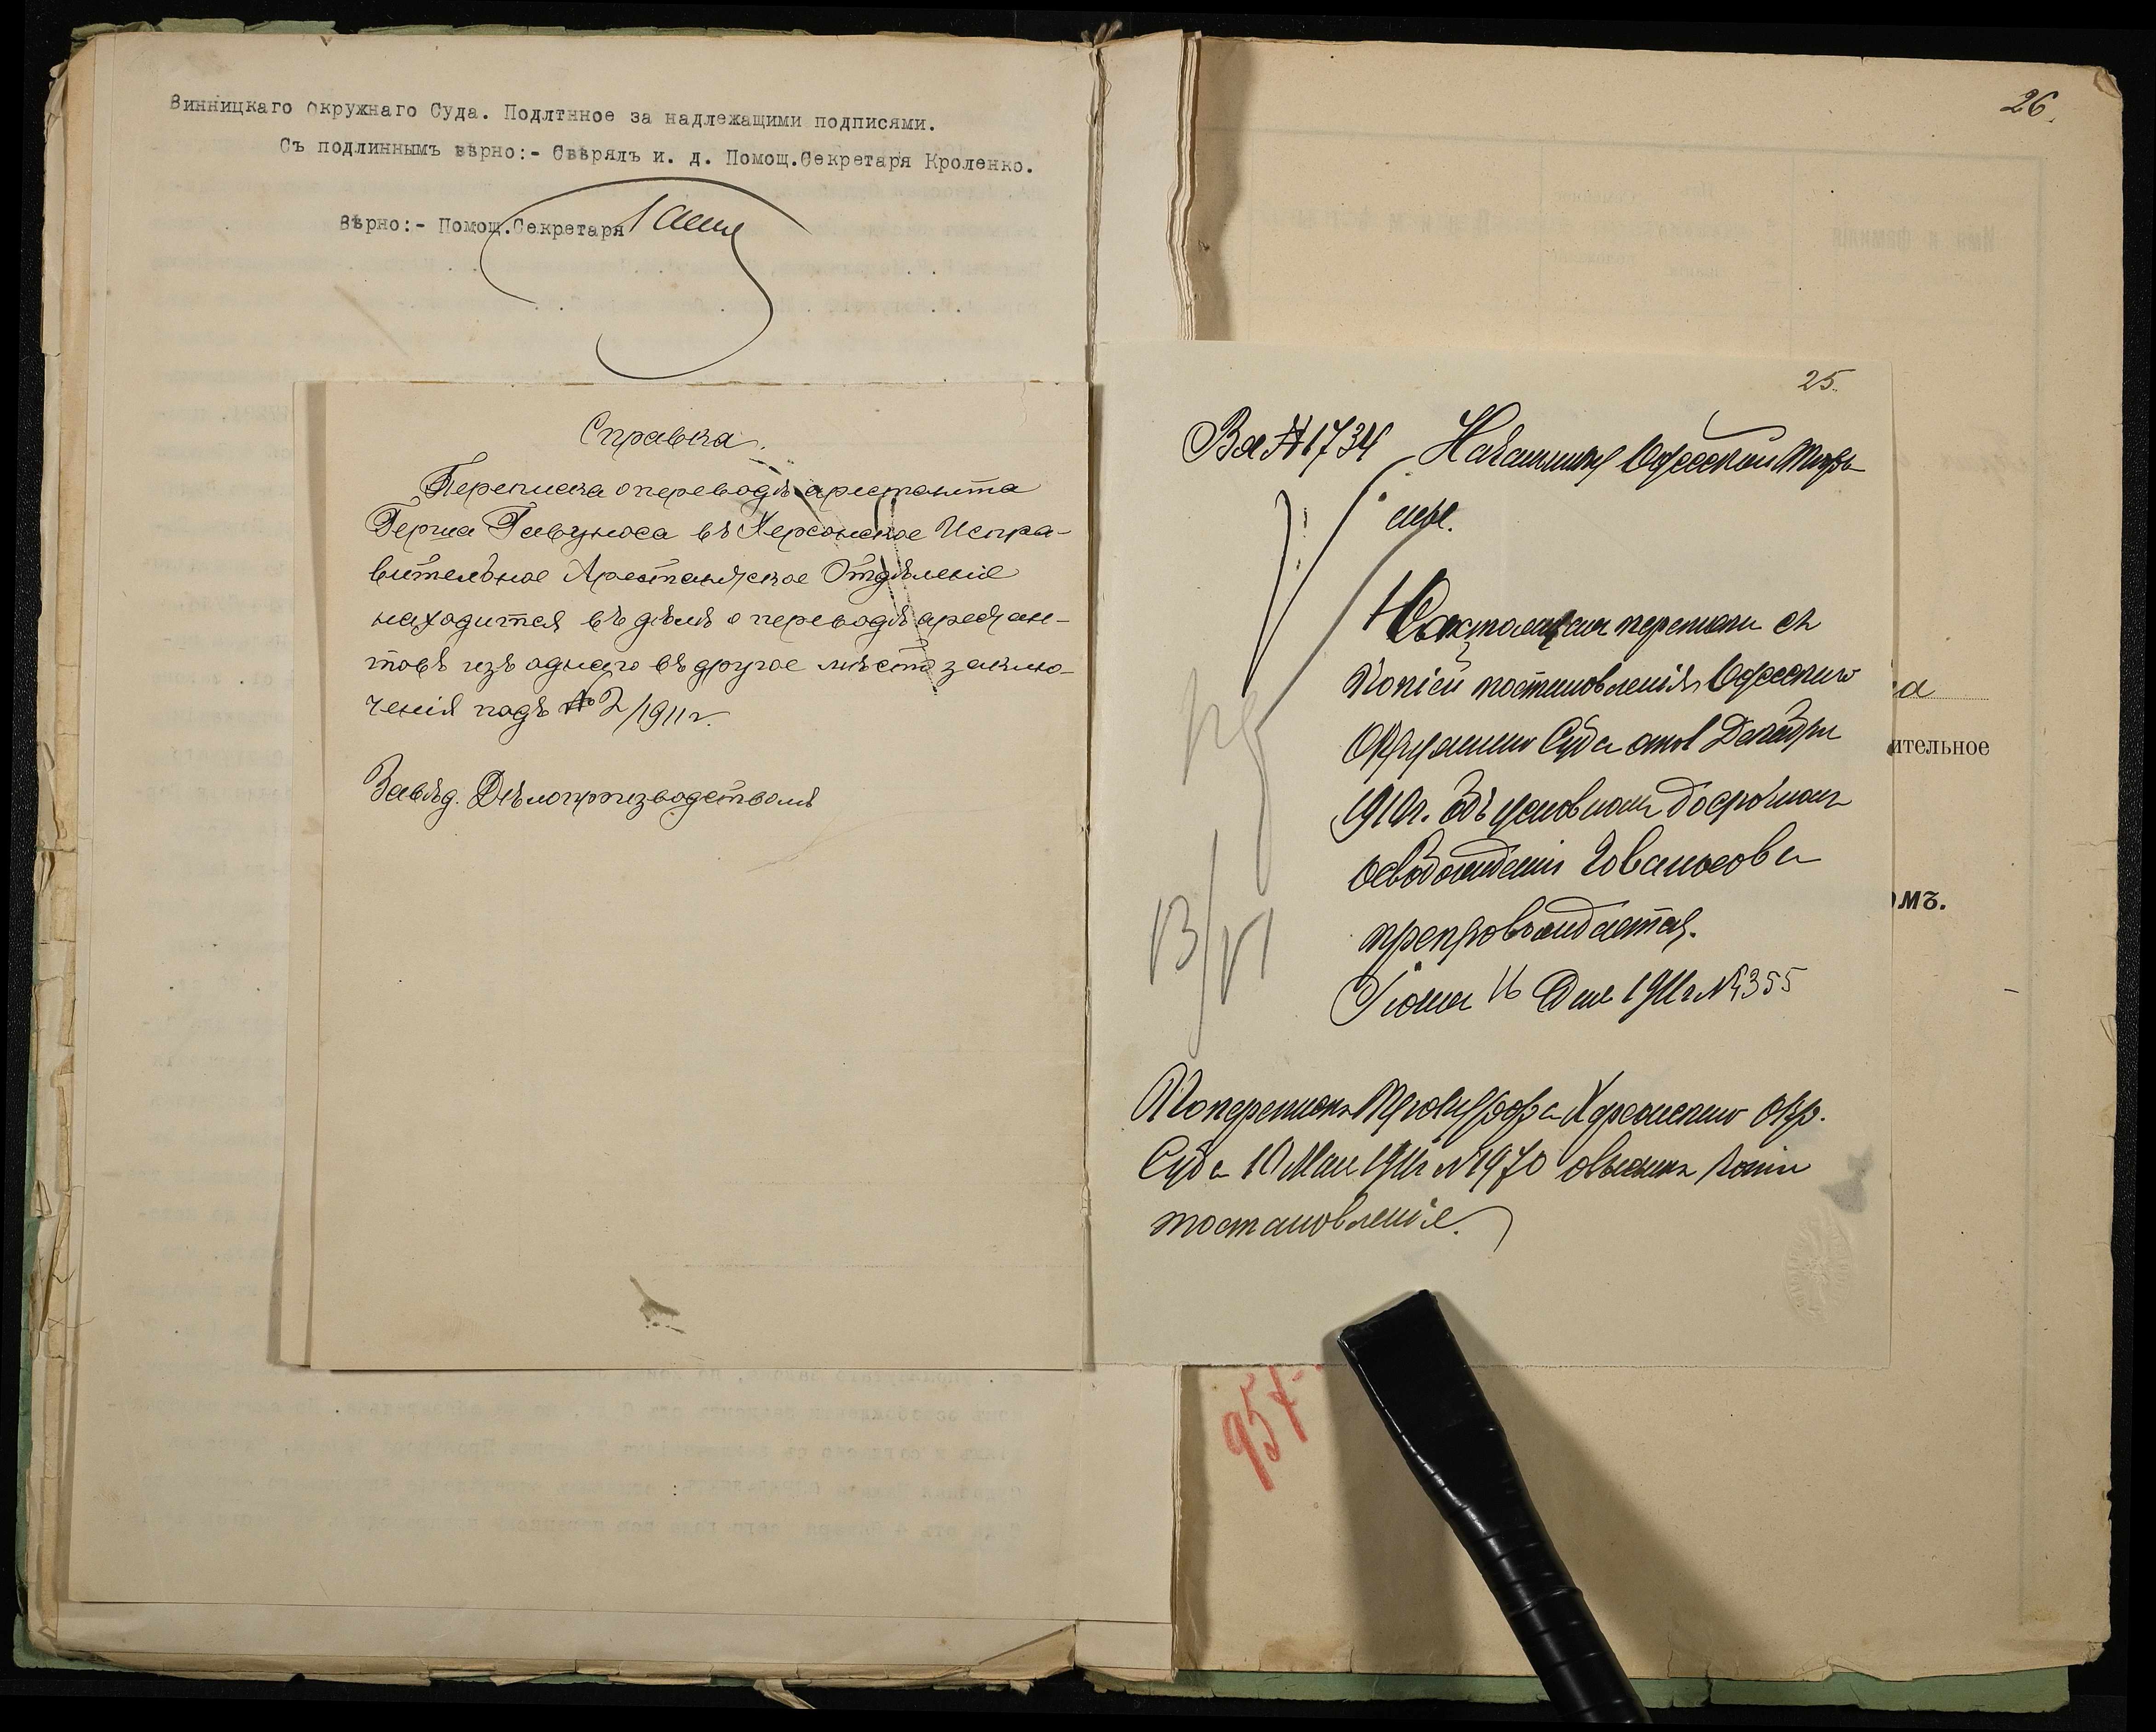 Винницкаго окружнаго Суда. Подлтнное за надлежащими подписями.
Съ подлиннымъ вѣрно:- Свѣрялъ и. д. Помощ.Секретаря Кроленко.
Вѣрно:- Помощ.Секретаря
Справка.
Переписка о переводѣ арестанта
Герша Гавуноса въ Херсонское Испра-
вительное Арестантское Отдѣленіе
находится въ дѣлѣ о переводѣ арестан-
товъ изъ одного въ другое мѣсто заклю-
ченія подъ № 2/1911 г.
Завѣд. Дѣлопроизводствомъ
26.
25.
Вх № 1734 Начальнику Одесской Тюрь-
мы.
Настоящая переписка съ
копіей постановленія Одесскаго
Окружнаго Суда отъ Декабря
1910 г. объ условномъ досрочномъ
освобожденіи
препровождается.
Іюня 16 Дня 1911 г. № 4355
13/VI
По перепискѣ Прокурора Херсонскаго Окр.
Суда 10 Мая 1911 г. № 1970 о высылкѣ копіи
постановленія.
ительное
омъ.
957